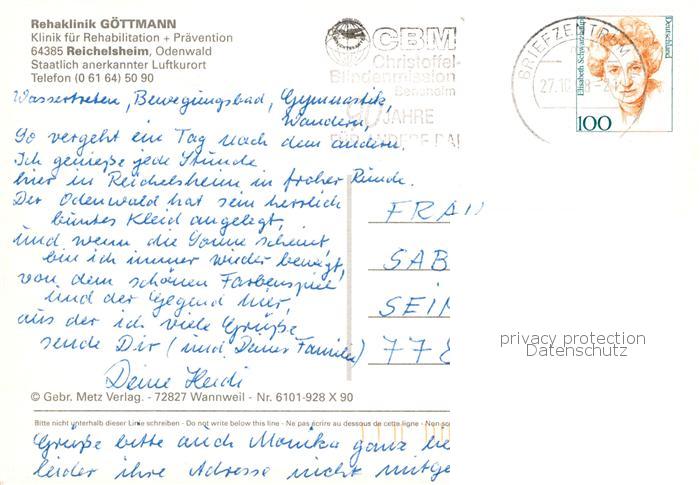 Rehaklinik GÖTTMANN
Klinik für Rehabilitation + Prävention
64385 Reichelsheim, Odenwald
Staatlich anerkannter Luftkurort
Telefon (0 61 64) 50 90
CBM
Christoffel-
Blindenmission
Bensheim
JAHRE
FÜR ANDERE DA!
BRIEFZENTRUM
27.10
Elisabeth Schwarzhaupt
Deutschland
100
Wassertreten, Bewegungsbad, Gymnastik,
Wandern,
So vergeht ein Tag nach dem andern.
Ich genieße jede Stunde
hier in Reichelsheim in froher Runde.
Der Odenwald hat sein herrlich
buntes Kleid angelegt,
und wenn die Sonne scheint,
bin ich immer wieder bewegt,
von dem schönen Farbenspiel
und der Gegend hier,
aus der ich viele Grüße
sende Dir (und Deiner Familie)
Deine Heidi
FRAU
SAB
SEIN
778
privacy protection
Datenschutz
© Gebr. Metz Verlag. - 72827 Wannweil - Nr. 6101-928 X 90
Bitte nicht unterhalb dieser Linie schreiben - Do not write below this line - Ne pas écrire au dessous de cette ligne - Non sc
Grüße bitte auch Monika ganz he
leider ihre Adresse nicht mitge